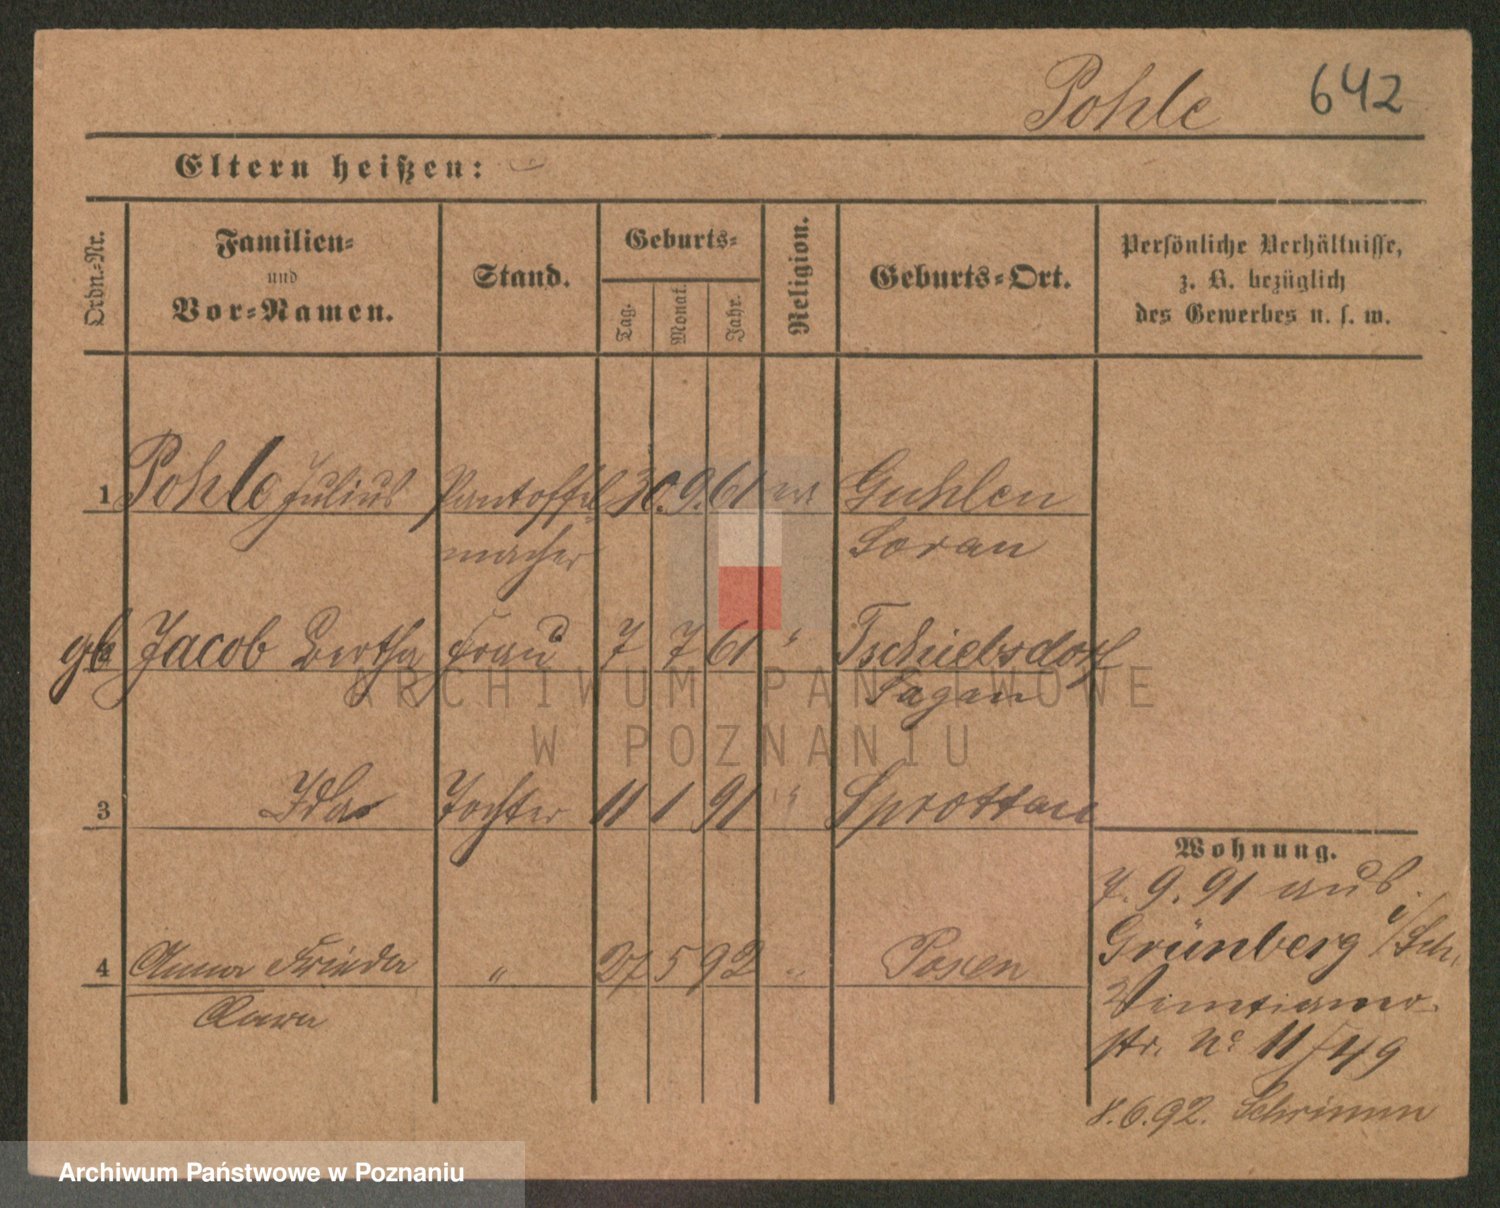 Pohle 642
Eltern heißen:
Ordn.-Nr. Familien- und Vor-Namen. Stand. Geburts- Tag. Monat. Jahr. Religion. Geburts-Ort. Persönliche Verhältnisse, z. B. bezüglich des Gewerbes u. s. w.
1 Pohle Julius Pantoffel 30. 9. 61 ev Guhlen
macher Soran
gb Jacob Bertha Frau 7 7 61 " Tschiebsdorf
Sagan
ARCHIWUM PAŃSTWOWE
W POZNANIU
3 Ida Tochter 11 1 91 " Sprottau
Wohnung.
7. 9. 91 aus
Grünberg i/Sch.
4 Anna Frieda " 27 5 92 " Posen
Clara
str. No 11/49
8. 6. 92. Schrimm
Archiwum Państwowe w Poznaniu